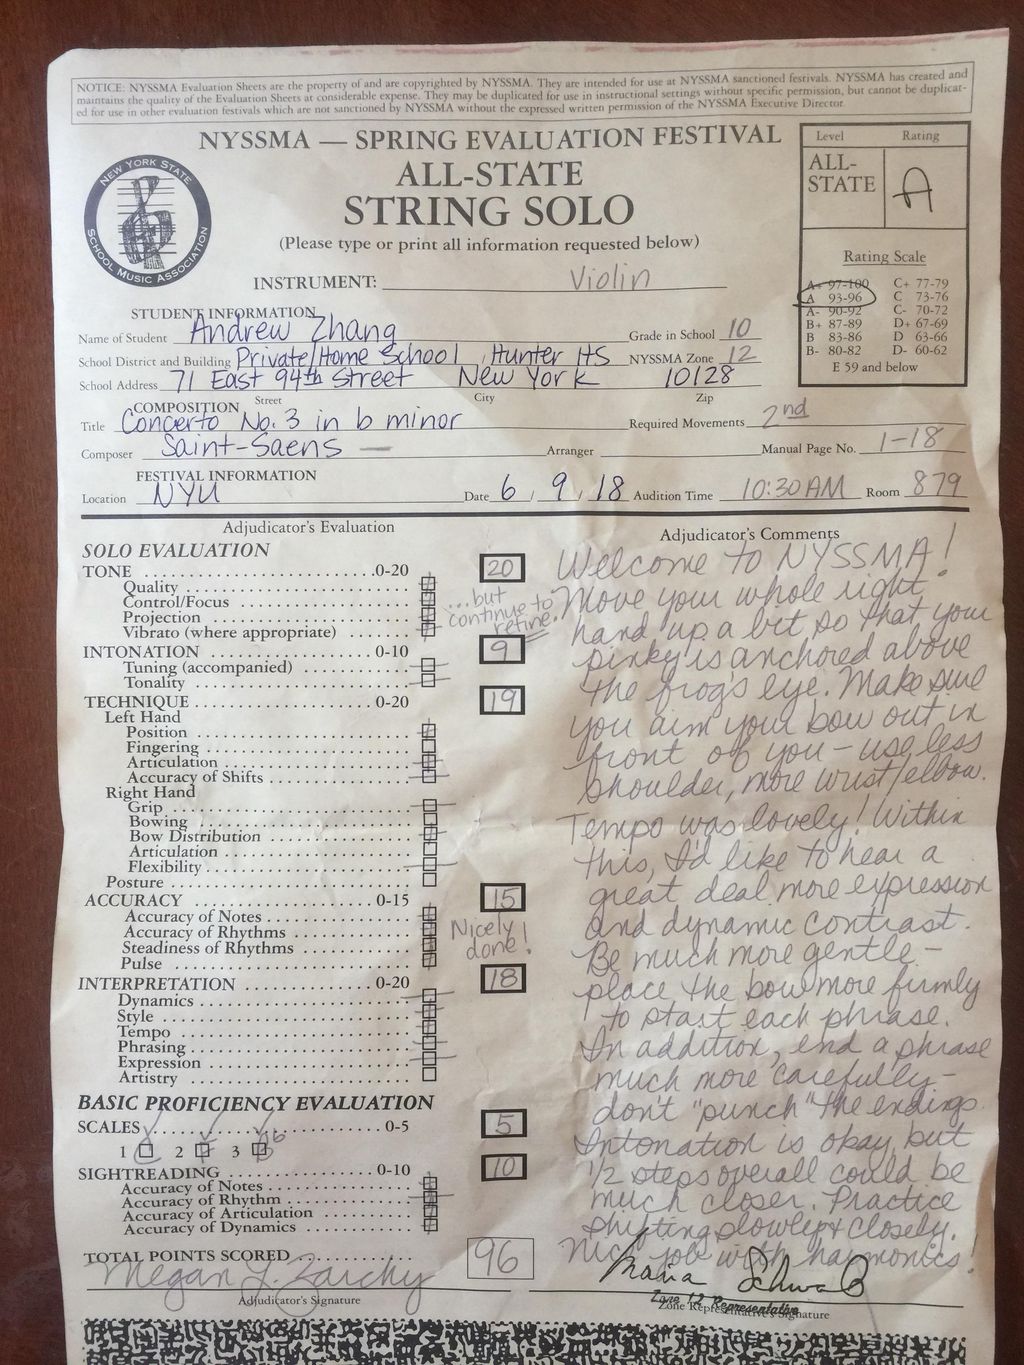 NOTICE: NYSSMA Evaluation Sheets are the property of and are copyrighted by NYSSMA. They are intended for use at NYSSMA sanctioned festivals. NYSSMA has created and
maintains the quality of the Evaluation Sheets at considerable expense. They may be duplicated for use in instructional settings without specific permission, but cannot be duplicat-
ed for use in other evaluation festivals which are not sanctioned by NYSSMA without the expressed written permission of the NYSSMA Executive Director
NYSSMA — SPRING EVALUATION FESTIVAL
ALL-STATE
STRING SOLO
(Please type or print all information requested below)
NEW YORK STATE SCHOOL MUSIC ASSOCIATION
Level Rating
ALL-STATE A
Rating Scale
A+ 97-100 C+ 77-79
A 93-96 C 73-76
A- 90-92 C- 70-72
B+ 87-89 D+ 67-69
B 83-86 D 63-66
B- 80-82 D- 60-62
E 59 and below
INSTRUMENT: Violin
STUDENT INFORMATION
Name of Student Andrew Zhang Grade in School 10
School District and Building Private/Home School, Hunter HS NYSSMA Zone 12
School Address 71 East 94th Street New York 10128
Street City Zip
COMPOSITION
Title Concerto No. 3 in b minor Required Movements 2nd
Composer Saint-Saens — Arranger Manual Page No. 1-18
FESTIVAL INFORMATION
Location NYU Date 6 / 9 / 18 Audition Time 10:30 AM Room 879
Adjudicator's Evaluation
SOLO EVALUATION
TONE 0-20 20
Quality
Control/Focus
Projection
Vibrato (where appropriate)
...but
continue to
refine.
INTONATION 0-10 9
Tuning (accompanied)
Tonality
TECHNIQUE 0-20 19
Left Hand
Position
Fingering
Articulation
Accuracy of Shifts
Right Hand
Grip
Bowing
Bow Distribution
Articulation
Flexibility
Posture
ACCURACY 0-15 15
Accuracy of Notes
Accuracy of Rhythms
Steadiness of Rhythms
Pulse
Nicely
done!
INTERPRETATION 0-20 18
Dynamics
Style
Tempo
Phrasing
Expression
Artistry
BASIC PROFICIENCY EVALUATION
SCALES 0-5 5
1 2 3
SIGHTREADING 0-10 10
Accuracy of Notes
Accuracy of Rhythm
Accuracy of Articulation
Accuracy of Dynamics
TOTAL POINTS SCORED 96
Megan L. Zarchy
Adjudicator's Signature
Adjudicator's Comments
Welcome to NYSSMA!
Move your whole right
hand up a bit so that your
pinky is anchored above
the frog's eye. Make sure
you aim your bow out in
front of you – use less
shoulder, more wrist/elbow.
Tempo was lovely! Within
this, I'd like to hear a
great deal more expression
and dynamic contrast.
Be much more gentle –
place the bow more firmly
to start each phrase.
In addition, end a phrase
much more carefully –
don't "punch" the endings.
Intonation is okay, but
1/2 steps overall could be
much closer. Practice
shifting slowly & closely.
Nice job with harmonics!
Maria Schwab
Zone 12 Representative
Zone Representative's Signature